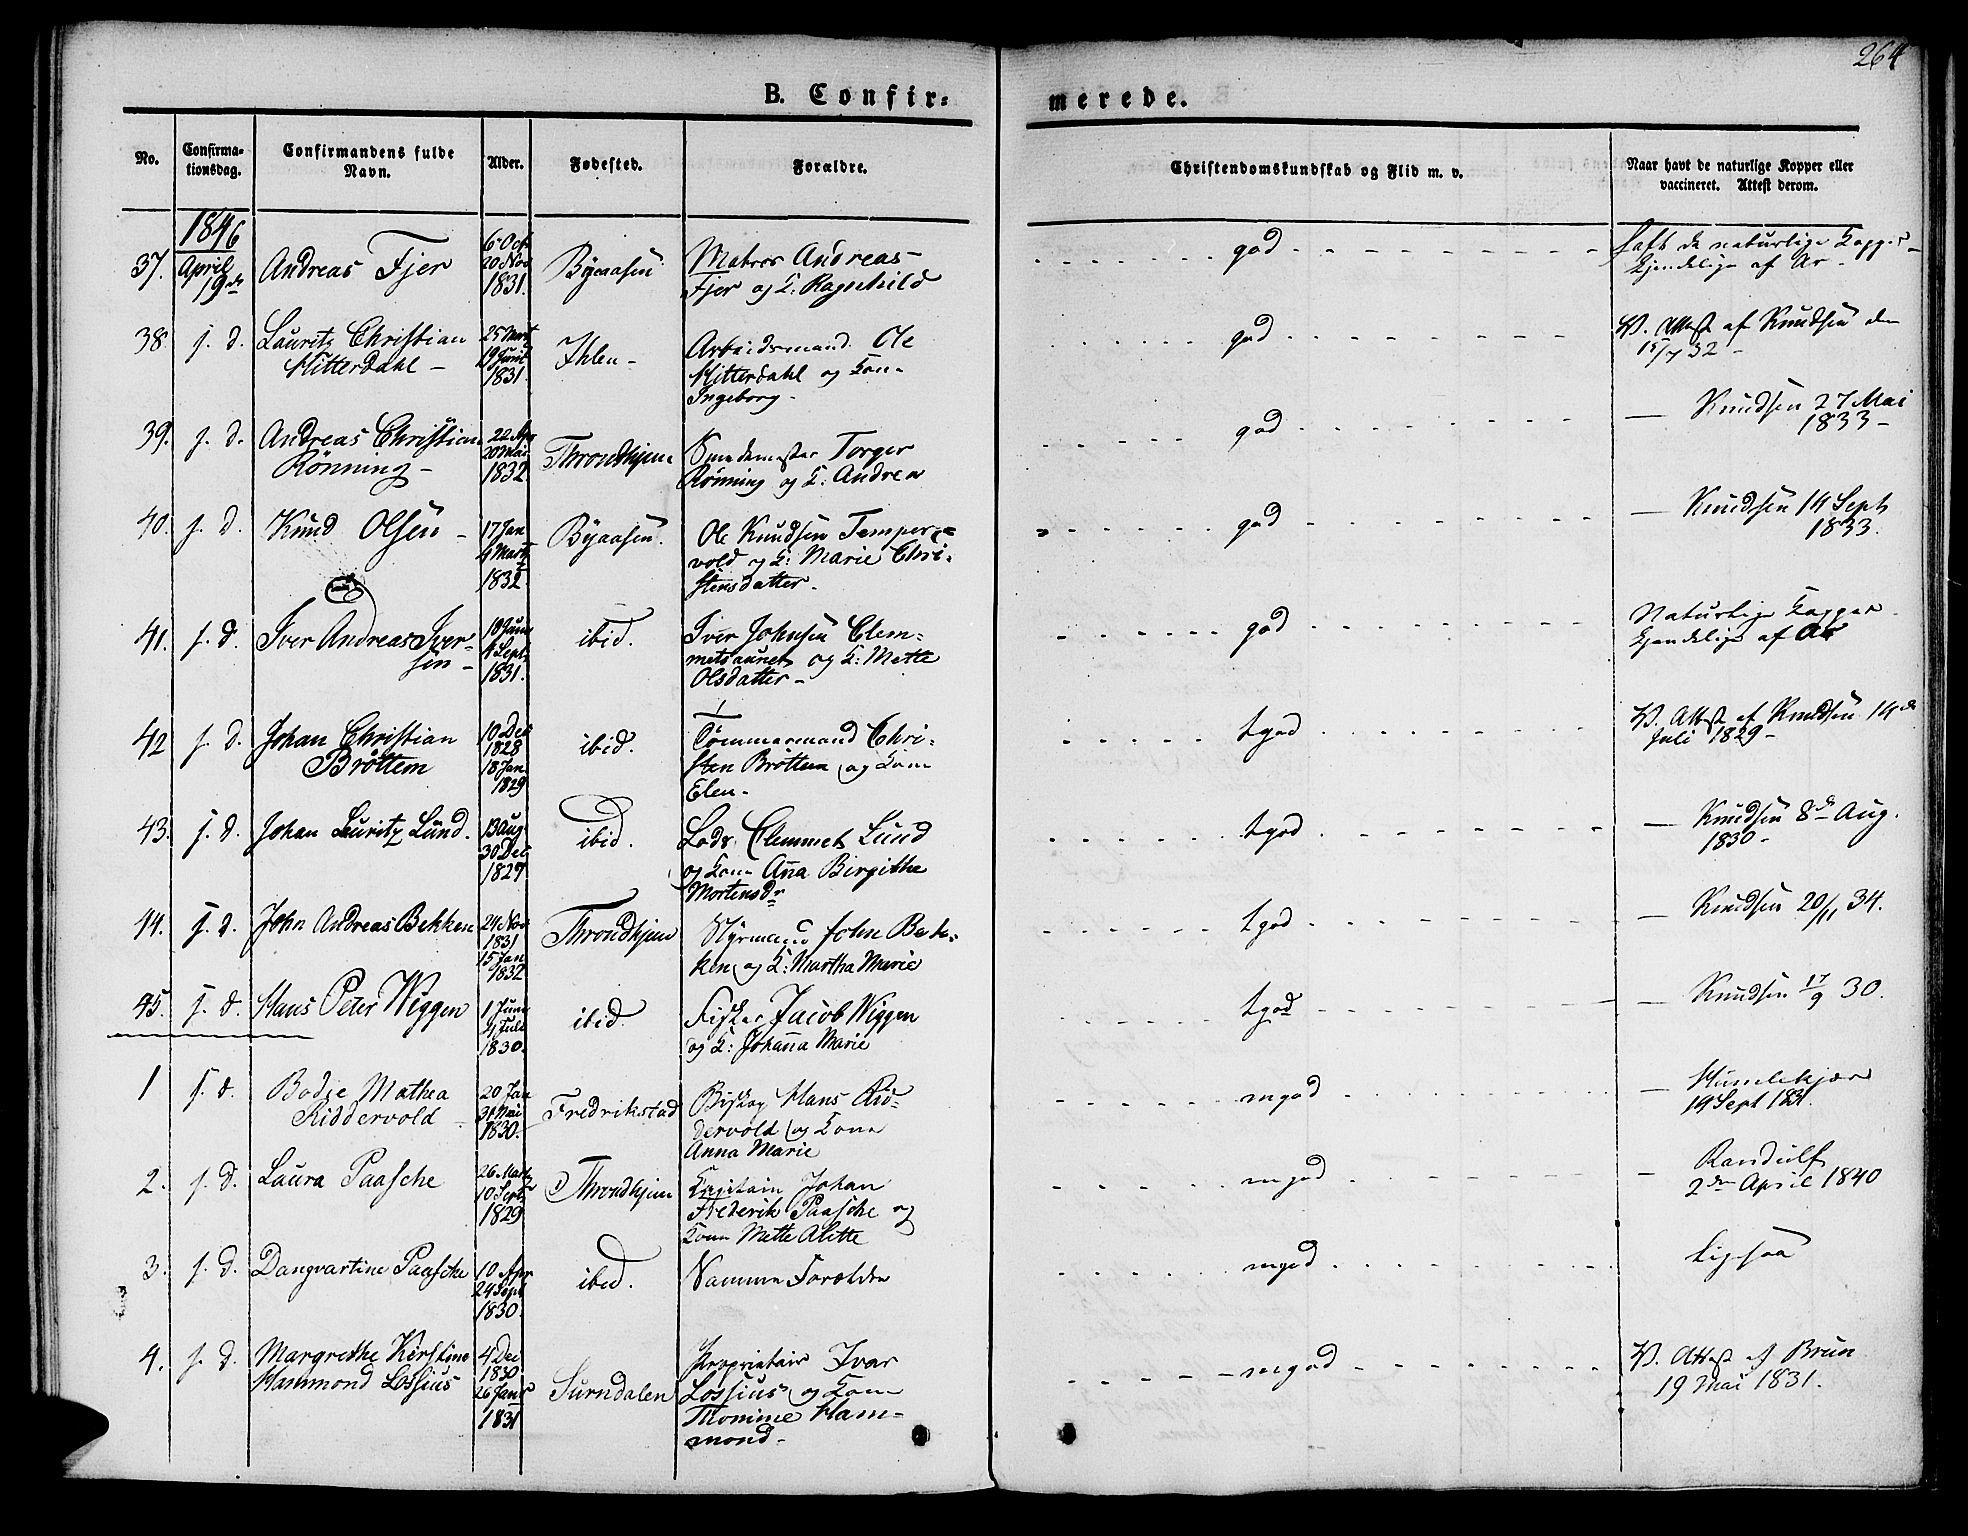 264
B. Confir=
merede.
No.
Confirma-
tionsdag.
Confirmandens fulde
Navn.
Alder.
Fødested.
Forældre.
Christendomskundskab og Flid m. v.
Naar havt de naturlige Kopper eller
vaccineret. Attest derom.
1846
37.
April
19de
Andreas Fjer
6 Oct
20 Nov
1831.
Byaasen
Matros Andreas
Fjer og K: Ragnhild
god
haft de naturlige Kopper
kjendelige af Ar -
38
s. d.
Lauritz Christian
Hitterdahl -
25 Mart
19 Juni
1831.
Ihlen -
Arbeidsmand Ole
Hitterdahl og Kone
Ingeborg -
god
V. Attest af Knudsen den
15/7 32 -
39.
s. d.
Andreas Christian
Rönning -
22 Apr
20 Mai
1832.
Throndhjem
Smedemester Torger
Rönning og K: Andrea
god
— Knudsen 27 Mai
1833 -
40.
s. d.
Knud Olsen -
17 Jan
4 Mart
1832
Byaasen.
Ole Knudsen Temper=
vold og K: Marie Chri=
stensdatter -
god
— Knudsen 14 Sept
1833.
41.
s. d.
Iver Andreas Iver=
sen -
18 Juni
4 Sept
1831.
ibid.
Iver Johnsen Clem=
metsaunet og K: Mette
Olsdatter -
god
Naturlige Kopper
kjendelige af Ar
42
s. d.
Johan Christian
Bröttem
10 Dec
1828
18 Jan
1829
ibid.
Tömmermand Chri=
sten Bröttem og Kone
Elen -
tgod
V. Attest af Knudsen 14de
Juli 1829 -
43.
s. d.
Johan Lauritz Lund.
13 Aug
30 Dec
1829
ibid.
Lods Clemmet Lund
og Kone Ana Birgithe
Mortensdr
tgod
— Knudsen 8de Aug.
1830 -
44.
s. d.
John Andreas Bekken
24 Nov
1831
15 Jan
1832
Throndhjem
Styrmand John Bek=
ken og K: Martha Marie
tgod
— Knudsen 20/11 34.
45.
s. d.
Hans Peter Wiggen
1 Juni
4 Juli
1830.
ibid.
Fisker Jacob Wiggen
og K: Johanna Marie
tgod
— Knudsen 17/9 30.
1
s. d.
Bodie Mathea
Riddervold
20 Jan
31 Mai
1830.
Fredrikstad
Biskop Hans Rid=
dervold og Kone
Anna Marie
mgod
— Humlekjær
19 Sept 1831.
2.
s. d.
Laura Paasche
26 Mart
10 Sept
1829
Throndhjem
Kapitain Johan
Frederik Paasche og
Kone Mette Alette
mgod
— Randulf
2den April 1840
3.
s. d.
Dangvartine Paasche
10 Apr
24 Sept
1830.
ibid.
Samme Forældre
mgod
Ligesaa
4.
s. d.
Margrethe Kirstine
Hammond Lossius
4 Dec
1830
26 Jan
1831
Surndalen
Proprietair Ivar
Lossius og Kone
Thomine Ham=
mond -
mgod
V. Attest af Brun
19 Mai 1831.